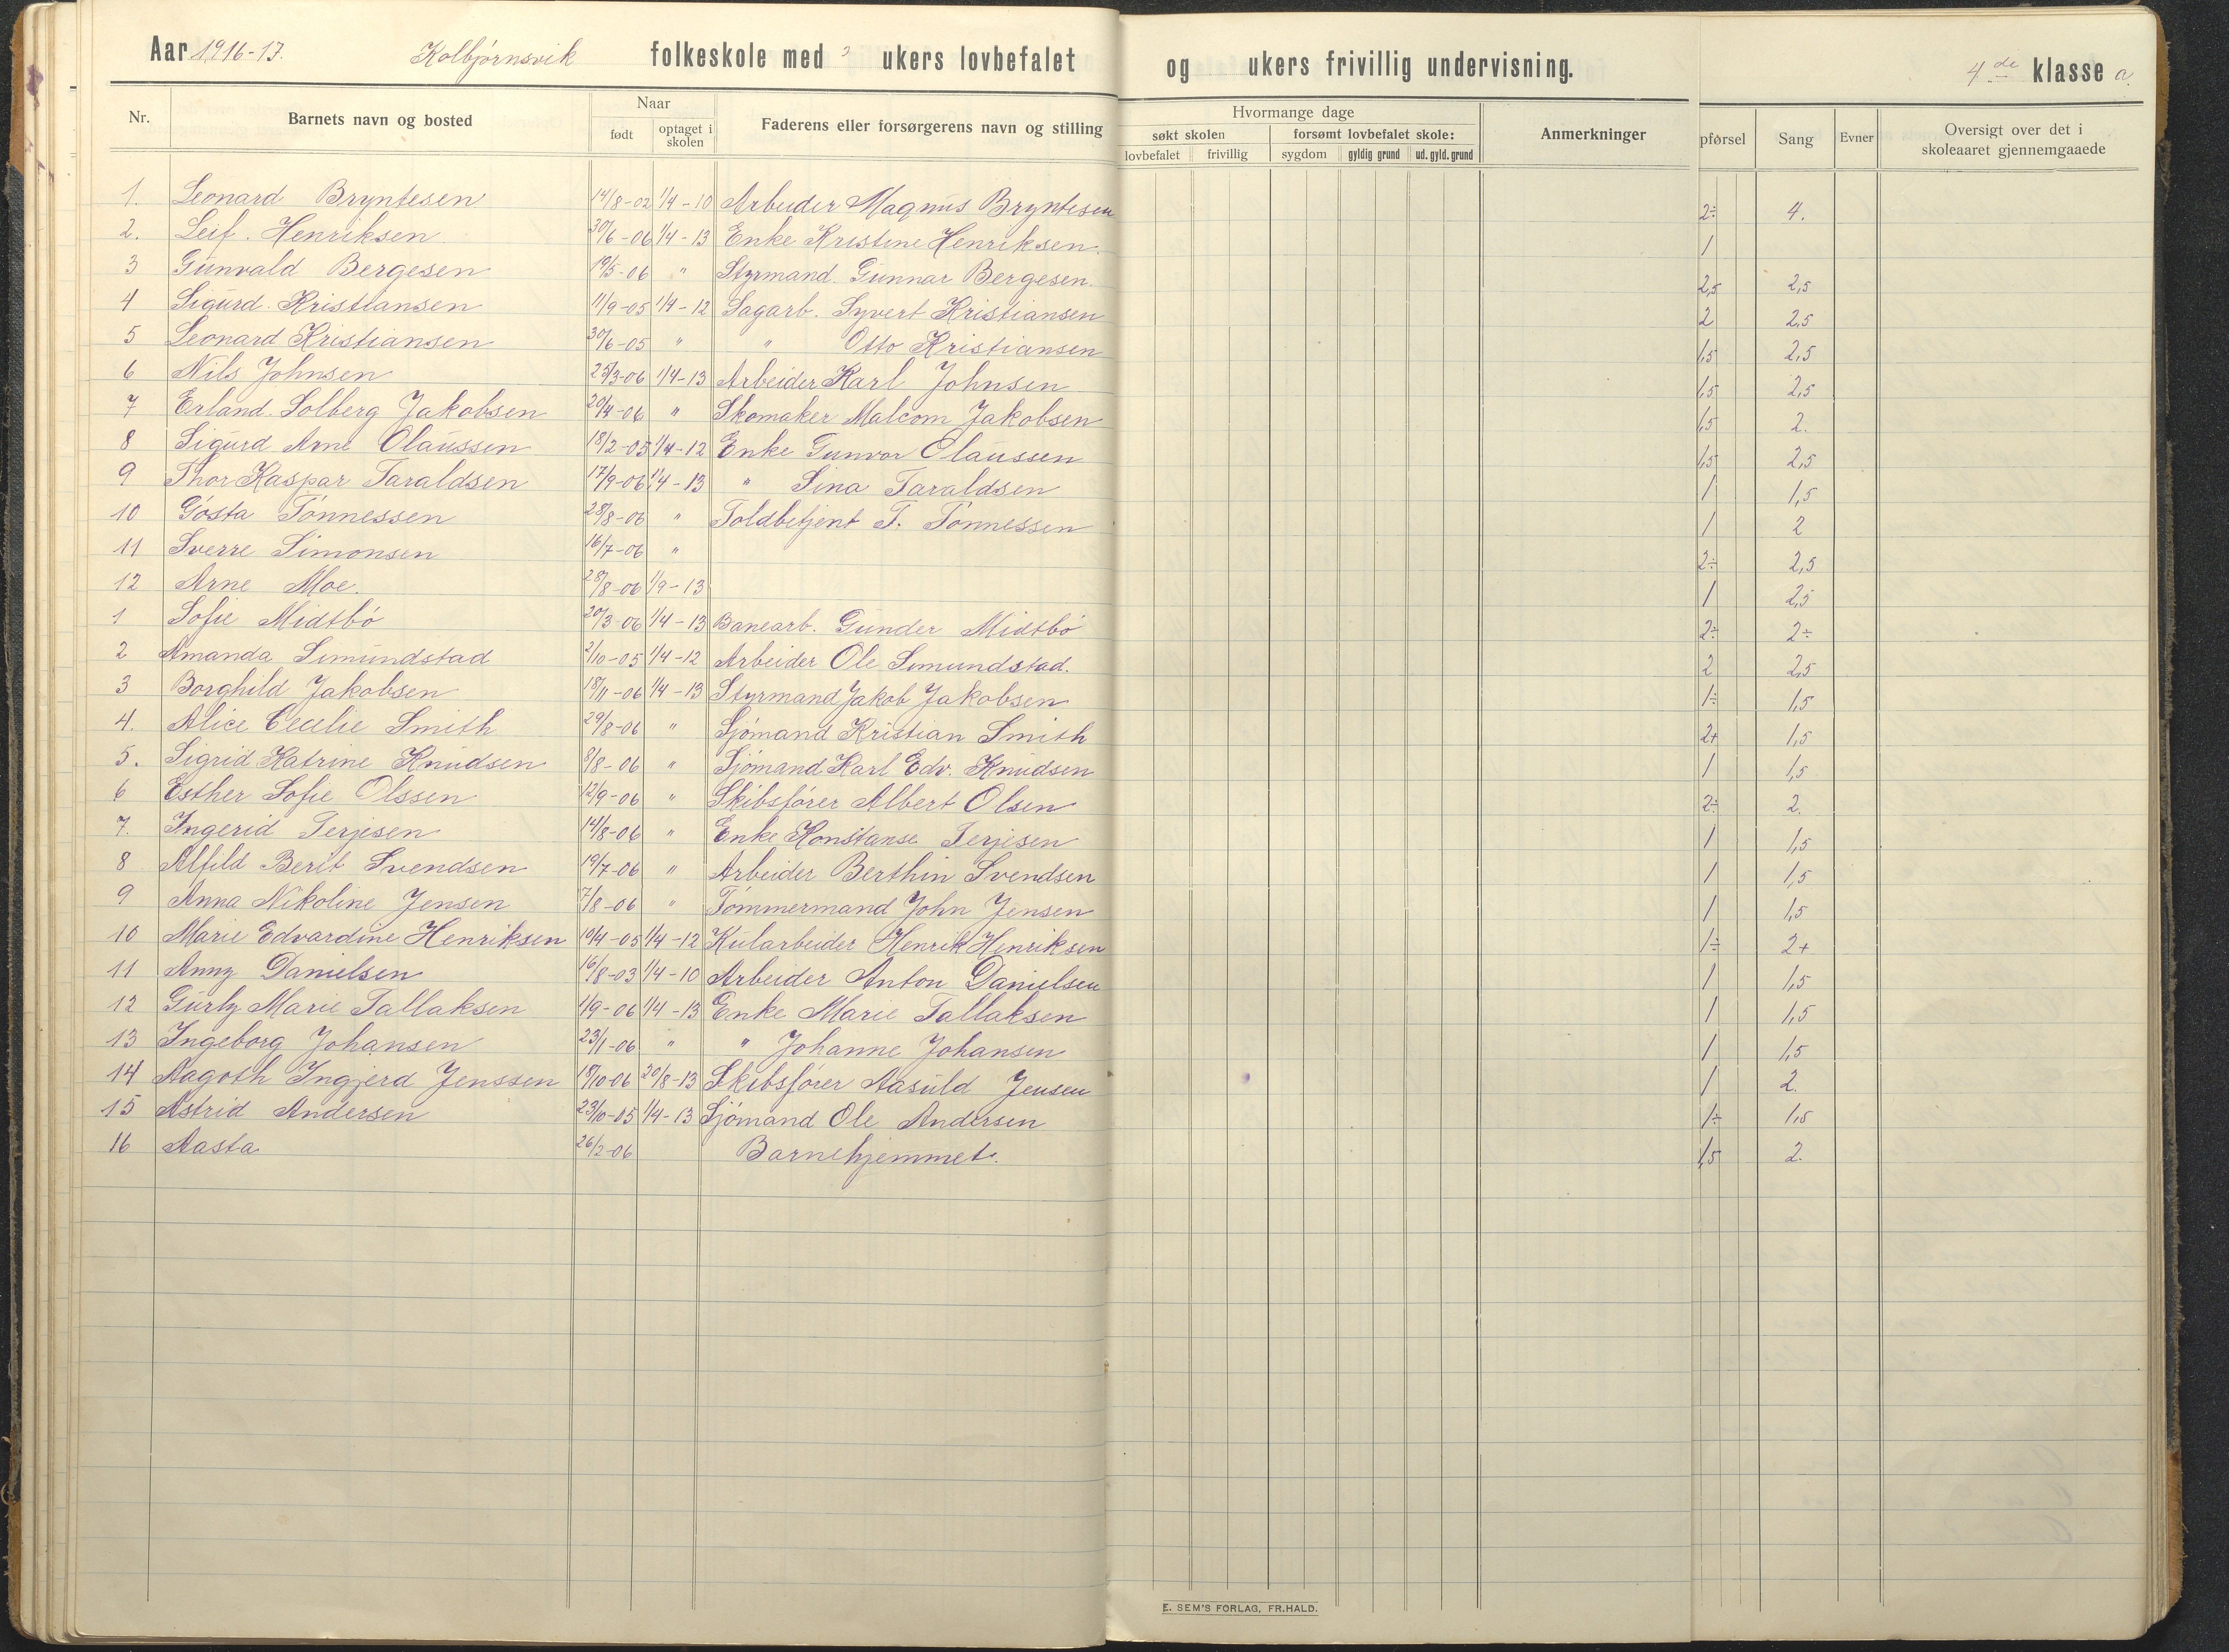 Aar 1916-17. Kolbjørnsvik folkeskole med ukers lovbefalet og ukers frivillig undervisning. 4de klasse a.
Nr. Barnets navn og bosted Naar født optaget i skolen Faderens eller forsørgerens navn og stilling Hvormange dage søkt skolen lovbefalet frivillig forsømt lovbefalet skole: sygdom gyldig grund ud. gyld. grund Anmerkninger pførsel Sang Evner Oversigt over det i skoleaaret gjennemgaaede
1. Leonard Bryntesen 14/8-02 1/4-10 Arbeider Magnus Bryntesen 2÷ 4.
2. Leif. Henriksen 30/6-06 1/4-13 Enke Kristine Henriksen. 1
3 Gunvald Bergesen 19/5-06 " Styrmand Gunnar Bergesen. 2,5 2,5
4 Sigurd. Kristiansen 11/9-05 1/4-12 Sagarb. Syvert Kristiansen 2 2,5
5 Leonard Kristiansen 30/6-05 " " Otto Kristiansen 1,5 2,5
6 Nils Johnsen 25/3-06 1/4-13 Arbeider Karl Johnsen 1,5 2,5
7 Erland Solberg Jakobsen 20/4-06 " Skomaker Malcom Jakobsen 1,5 2.
8 Sigurd Arne Olaussen 18/2-05 1/4-12 Enke Gunvor Olaussen 1,5 2,5
9 Thor Kaspar Taraldsen 17/9-06 1/4-13 " Lina Taraldsen 1 1,5
10 Gösta Tönnessen 28/8-06 " Toldbetjent T. Tönnessen 1 2
11 Sverre Simonsen 16/7-06 " 2÷ 2,5
12 Arne Moe. 28/8-06 1/9-13 1 2,5
1 Sofie Midtbö 20/3-06 1/4-13 Banearb. Gunder Midtbö 2÷ 2÷
2 Amanda Simundstad 2/10-05 1/4-12 Arbeider Ole Simundstad. 2 2,5
3 Borghild Jakobsen 18/11-06 1/4-13 Styrmand Jakob Jakobsen 1÷ 1,5
4. Alice Cecilie Smith 29/8-06 " Sjömand Kristian Smith 2+ 1,5
5. Sigrid Katrine Knudsen 8/8-06 " Sjömand Karl Edv. Knudsen 1 1,5
6 Esther Sofie Olssen 12/9-06 " Skibsförer Albert Olsen 2÷ 2.
7. Ingerid Terjesen 14/8-06 " Enke Konstanse Terjesen 1 1,5
8 Alfild Berit Svendsen 19/7-06 " Arbeider Berthin Svendsen 1 1,5
9 Anna Nikoline Jensen 7/8-06 " Tömmermand John Jensen 1 1,5
10 Marie Edvardine Henriksen 10/4-05 1/4-12 Kularbeider Henrik Henriksen 1÷ 2+
11 Anny Danielsen 16/8-03 1/4-10 Arbeider Anton Danielsen 1 1,5
12 Gurly Marie Tallaksen 1/9-06 1/4-13 Enke Marie Tallaksen 1 1,5
13 Ingeborg Johansen 23/1-06 " " Johanne Johansen 1 1,5
14 Aagoth Ingjerd Jenssen 18/10-06 20/8-13 Skibsförer Aasuld Jensen 1 2.
15 Astrid Andersen 23/10-05 1/4-13 Sjömand Ole Andersen 1÷ 1,5
16 Aasta 26/2-06 Barnehjemmet. 1,5 2.
E. SEM'S FORLAG, FR.HALD.